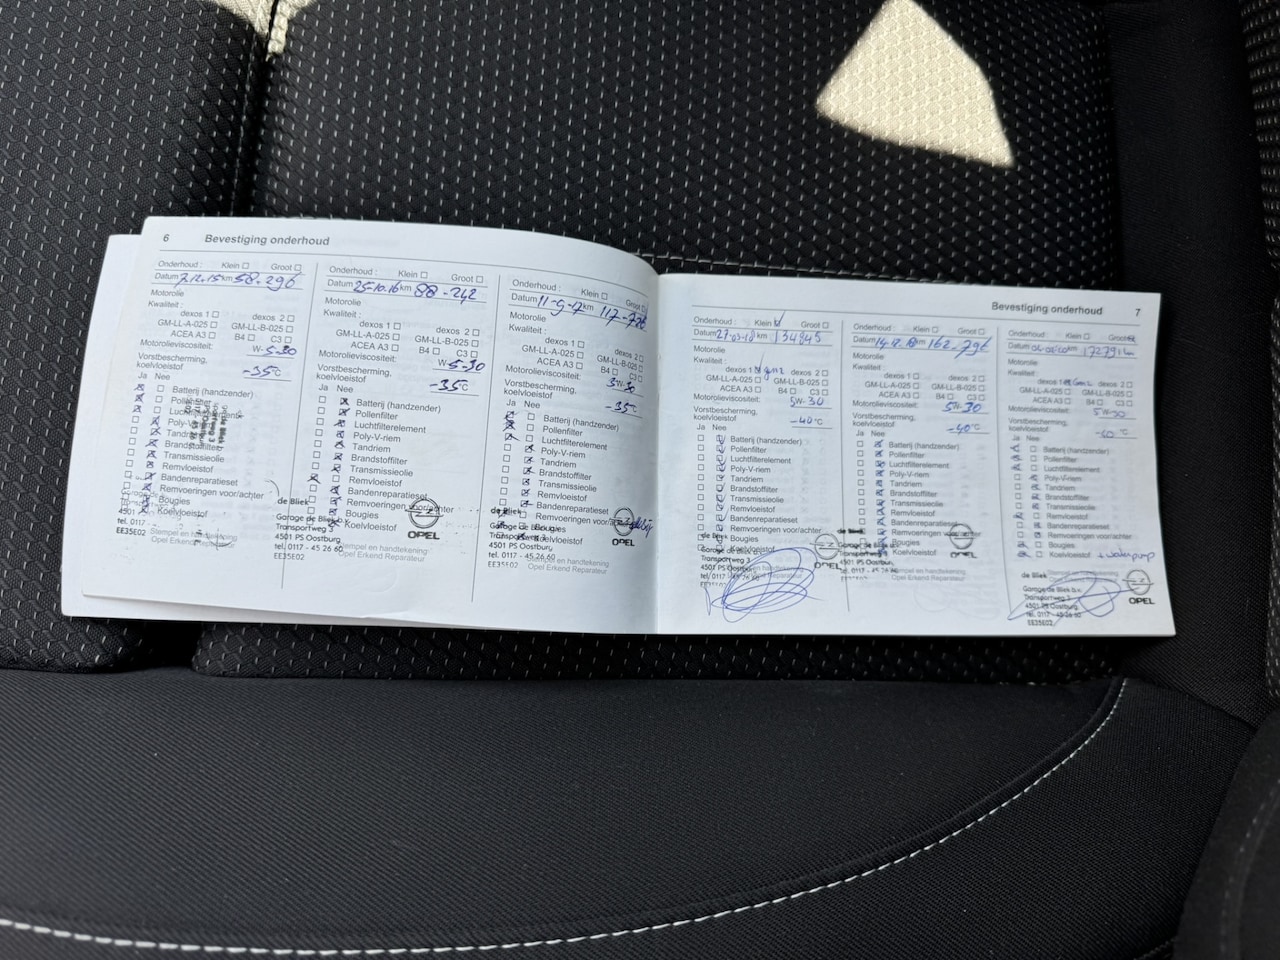 6 Bevestiging onderhoud
Onderhoud : Klein Groot
Datum 7.12.15 km 58.296
Motorolie
Kwaliteit :
dexos 1 dexos 2
GM-LL-A-025 GM-LL-B-025
ACEA A3 B4 C3
Motorolieviscositeit: W-5-30
Vorstbescherming,
koelvloeistof -35°C
Ja Nee
Batterij (handzender)
Pollenfilter
Poly-V-riem
Tandriem
Brandstoffilter
Transmissieolie
Remvloeistof
Bandenreparatieset
Remvoeringen voor/achter
Bougies
Koelvloeistof
4501
tel. 0117 -
EE35E02
Stempel en handtekening
Opel Erkend Reparateur
Onderhoud : Klein Groot
Datum 25-10.16 km 88-242
Motorolie
Kwaliteit :
dexos 1 dexos 2
GM-LL-A-025 GM-LL-B-025
ACEA A3 B4 C3
Motorolieviscositeit: W-5-30
Vorstbescherming,
koelvloeistof -35°C
Ja Nee
Batterij (handzender)
Pollenfilter
Luchtfilterelement
Poly-V-riem
Tandriem
Brandstoffilter
Transmissieolie
Remvloeistof
Bandenreparatieset
Remvoeringen voor/achter
Bougies
Koelvloeistof
de Bliek
Garage de Bliek b.v.
Transportweg 3
4501 PS Oostburg
tel. 0117 - 45 26 60
EE35E02
OPEL
Stempel en handtekening
Opel Erkend Reparateur
Onderhoud : Klein Groot
Datum 11-9-17 km 117-728
Motorolie
Kwaliteit :
dexos 1 dexos 2
GM-LL-A-025 GM-LL-B-025
ACEA A3 B4 C3
Motorolieviscositeit: 5W-30
Vorstbescherming,
koelvloeistof -35°C
Ja Nee
Batterij (handzender)
Pollenfilter
Luchtfilterelement
Poly-V-riem
Tandriem
Brandstoffilter
Transmissieolie
Remvloeistof
Bandenreparatieset
Remvoeringen voor/achter
Bougies
Koelvloeistof
de Bliek
Garage de Bliek b.v.
Transportweg 3
4501 PS Oostburg
tel. 0117 - 45 26 60
EE35E02
OPEL
Stempel en handtekening
Opel Erkend Reparateur
Bevestiging onderhoud 7
Onderhoud : Klein Groot
Datum 27-03-18 km 134845
Motorolie
Kwaliteit :
dexos 1 gen2 dexos 2
GM-LL-A-025 GM-LL-B-025
ACEA A3 B4 C3
Motorolieviscositeit: 5W-30
Vorstbescherming,
koelvloeistof -40°C
Ja Nee
Batterij (handzender)
Pollenfilter
Luchtfilterelement
Poly-V-riem
Tandriem
Brandstoffilter
Transmissieolie
Remvloeistof
Bandenreparatieset
Remvoeringen voor/achter
Bougies
Koelvloeistof
de Bliek
Garage de Bliek b.v.
Transportweg 3
4501 PS Oostburg
tel. 0117 - 45 26 60
OPEL
Onderhoud : Klein Groot
Datum 14.12.18 km 162-796
Motorolie
Kwaliteit :
dexos 1 dexos 2
GM-LL-A-025 GM-LL-B-025
ACEA A3 B4 C3
Motorolieviscositeit: 5W-30
Vorstbescherming,
koelvloeistof -40°C
Ja Nee
Batterij (handzender)
Pollenfilter
Luchtfilterelement
Poly-V-riem
Tandriem
Brandstoffilter
Transmissieolie
Remvloeistof
Bandenreparatieset
Remvoeringen voor/achter
Bougies
Koelvloeistof
de Bliek
Garage de Bliek b.v.
Transportweg 3
4501 PS Oostburg
Stempel en handtekening
Opel Erkend Reparateur
Onderhoud : Klein Groot
Datum km 172791 km
Motorolie
Kwaliteit :
dexos 1 Gen2 dexos 2
GM-LL-A-025 GM-LL-B-025
ACEA A3 B4 C3
Motorolieviscositeit: 5W30
Vorstbescherming,
koelvloeistof -40°C
Ja Nee
Batterij (handzender)
Pollenfilter
Luchtfilterelement
Poly-V-riem
Tandriem
Brandstoffilter
Transmissieolie
Remvloeistof
Bandenreparatieset
Remvoeringen voor/achter
Bougies
Koelvloeistof + waterpump
de Bliek
Garage de Bliek b.v.
Transportweg 3
4501 PS Oostburg
tel. 0117 - 45 26 60
EE35E02
OPEL
Stempel en handtekening
Opel Erkend Reparateur